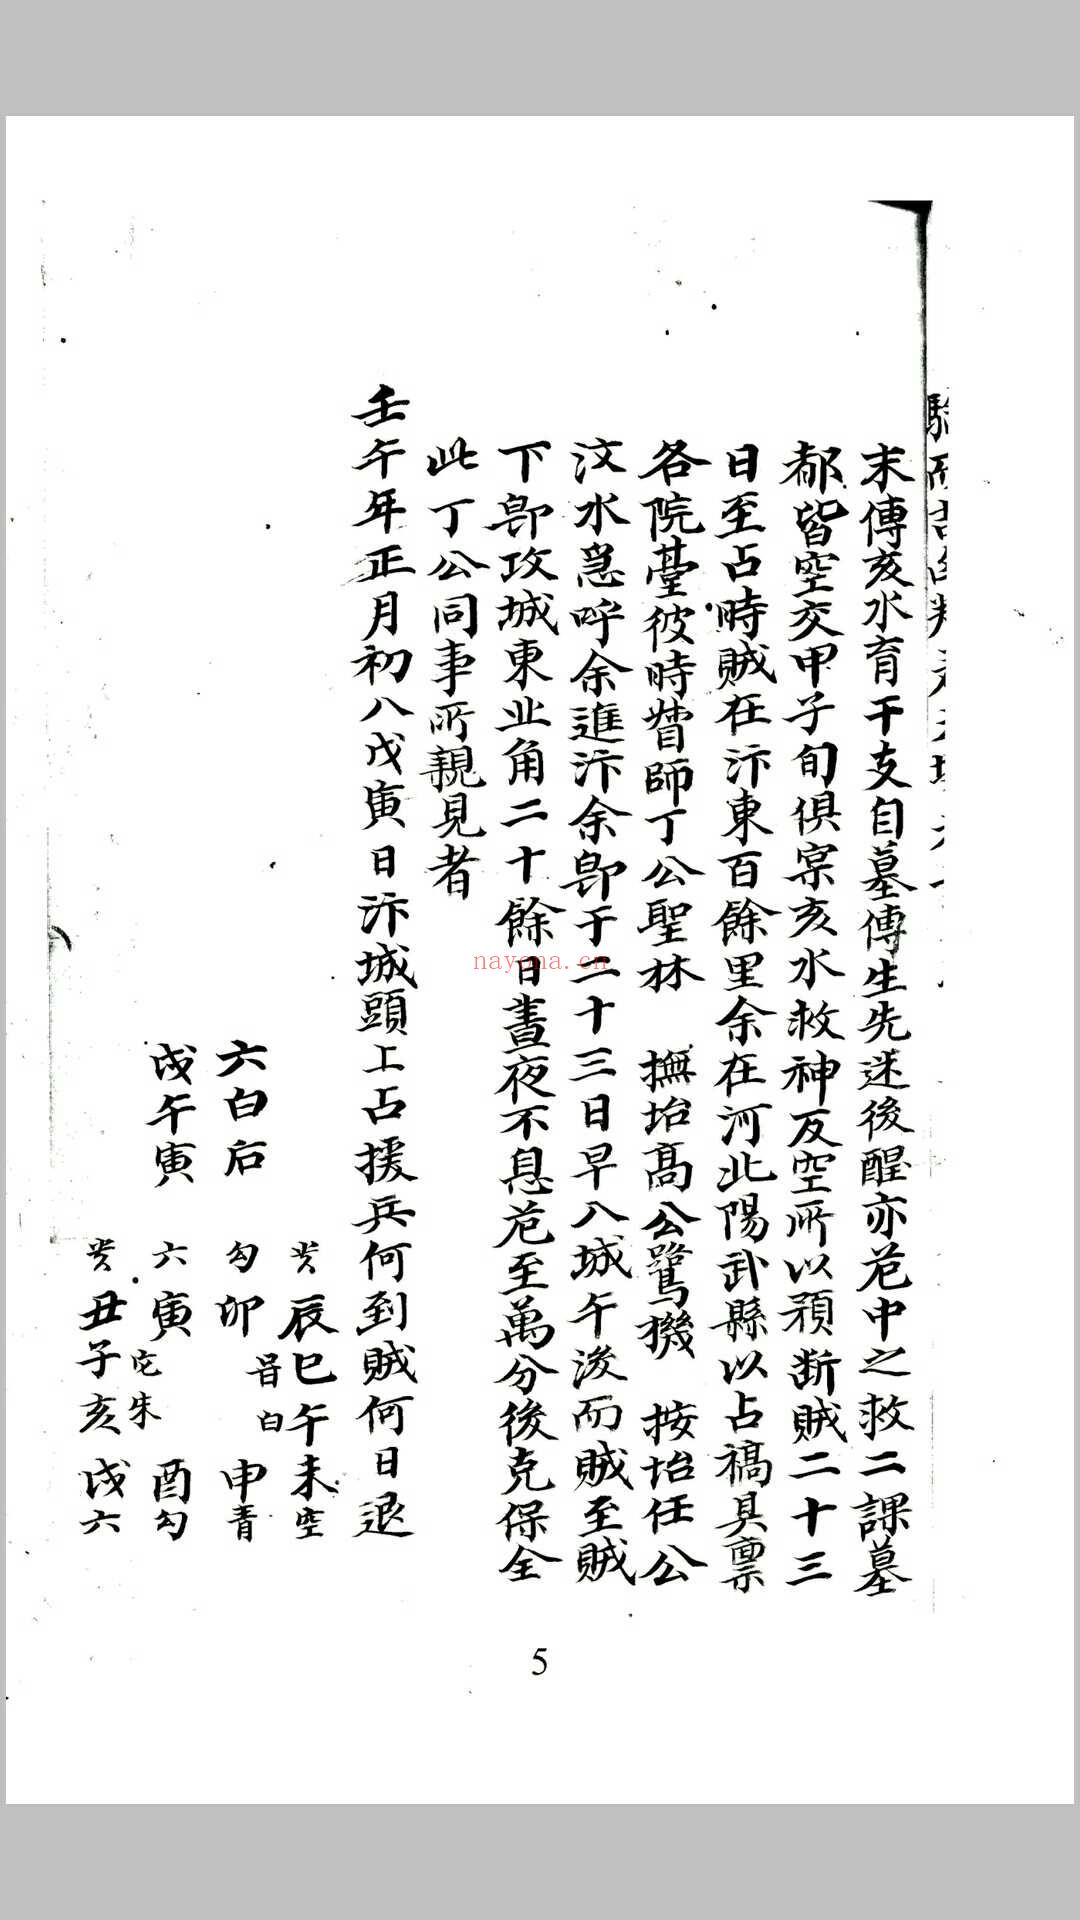 末傳亥水育干支自墓傳生先迷後醒亦危中之救二課墓
都皆空交甲子旬俱寀亥水救神反空所以預断賊二十三
日至占時賊在汴東百餘里余在河北陽武縣以占禍具禀
各院臺彼時督師丁公聖林 撫坮高公 按坮任公
汶水急呼余進汴余即于二十三日早入城午後而賊至賊
下即攻城東北角二十餘日晝夜不息危至萬分後克保全
此丁公同事所親見者
壬午年正月初八戊寅日汴城頭上占援兵何到賊何日退
六白后
戌午寅
辰巳午未空
勾卯 白 申青
六寅 朱 酉勾
丑子亥戌六
nayona.cn
5